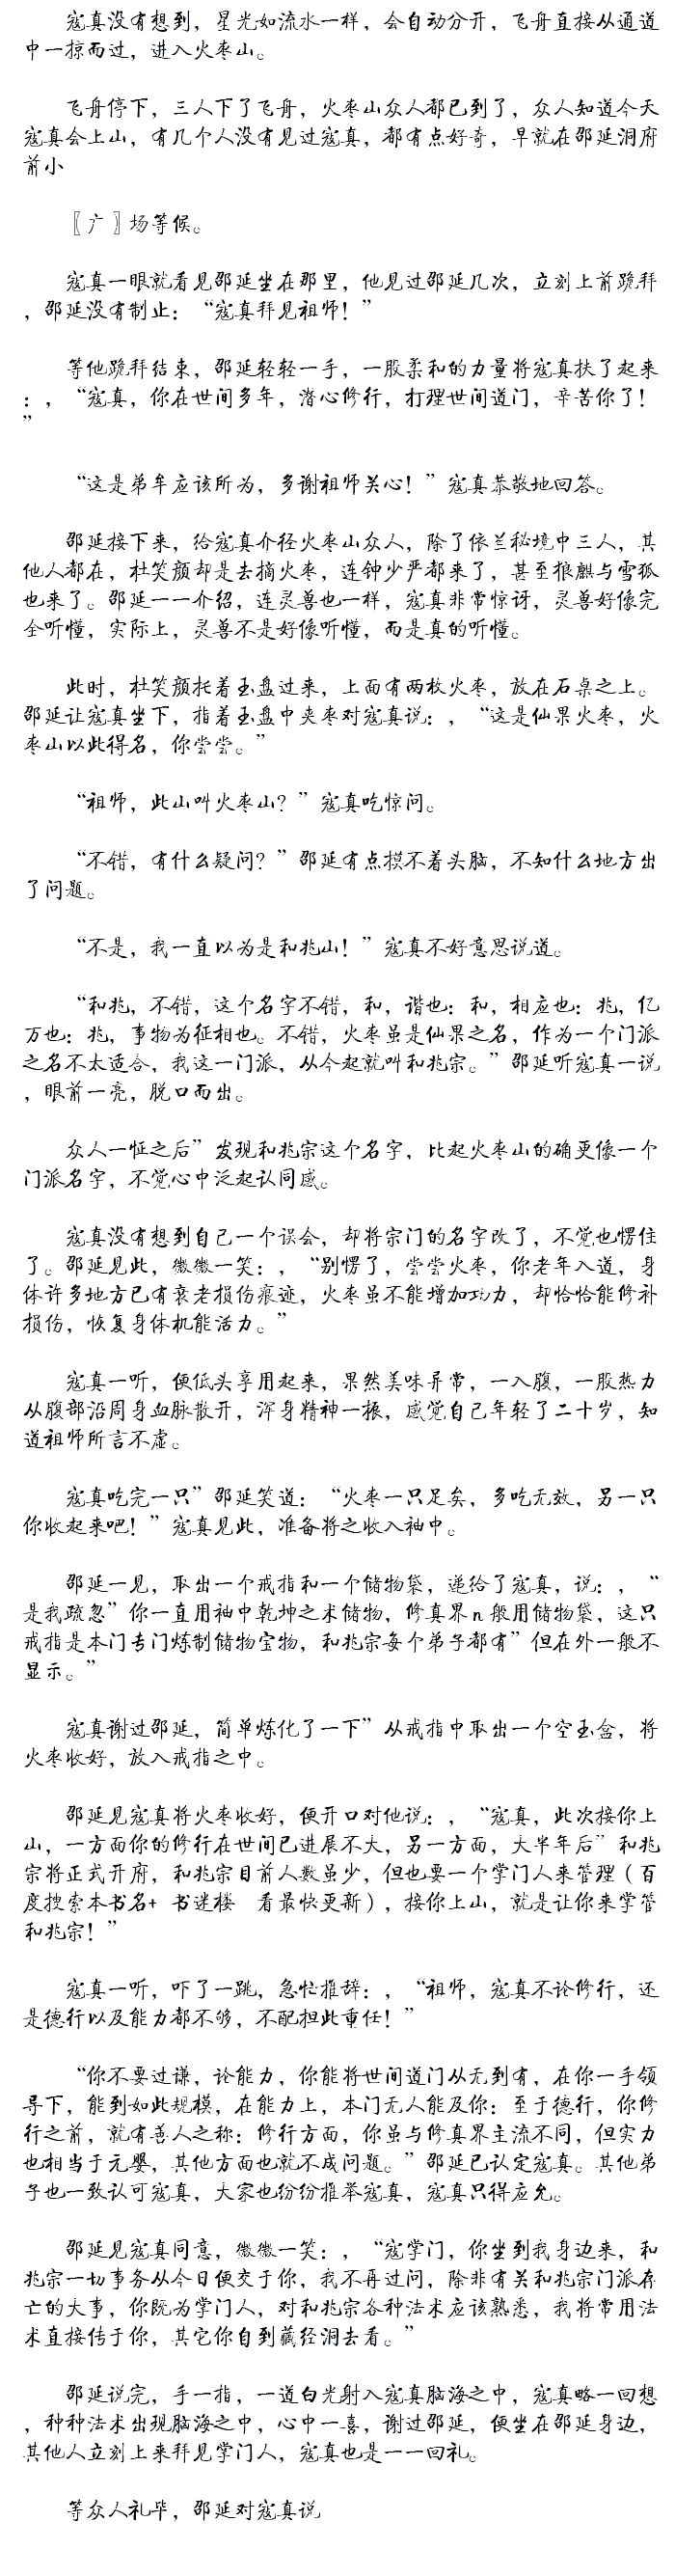 寇真没有想到，星光如流水一样，会自动分开，飞舟直接从通道
中一掠而过，进入火枣山。
飞舟停下，三人下了飞舟，火枣山众人都已到了，众人知道今天
寇真会上山，有几个人没有见过寇真，都有点好奇，早就在邵延洞府
前小
〖广〗场等候。
寇真一眼就看见邵延坐在那里，他见过邵延几次，立刻上前跪拜
，邵延没有制止：“寇真拜见祖师！”
等他跪拜结束，邵延轻轻一手，一股柔和的力量将寇真扶了起来
：，“寇真，你在世间多年，潜心修行，打理世间道门，辛苦你了！
”
“这是弟牟应该所为，多谢祖师关心！”寇真恭敬地回答。
邵延接下来，给寇真介径火枣山众人，除了依兰秘境中三人，其
他人都在，杜笑颜却是去摘火枣，连钟少严都来了，甚至狼麒与雪狐
也来了。邵延一一介绍，连灵兽也一样，寇真非常惊讶，灵兽好像完
全听懂，实际上，灵兽不是好像听懂，而是真的听懂。
此时，杜笑颜托着玉盘过来，上面有两枚火枣，放在石桌之上。
邵延让寇真坐下，指着玉盘中夹枣对寇真说：，“这是仙果火枣，火
枣山以此得名，你尝尝。”
“祖师，此山叫火枣山？”寇真吃惊问。
“不错，有什么疑问？”邵延有点摸不着头脑，不知什么地方出
了问题。
“不是，我一直以为是和兆山！”寇真不好意思说道。
“和兆，不错，这个名字不错，和，谐也：和，相应也：兆，亿
万也：兆，事物为征相也。不错，火枣虽是仙果之名，作为一个门派
之名不太适合，我这一门派，从今起就叫和兆宗。”邵延听寇真一说
，眼前一亮，脱口而出。
众人一怔之后”发现和兆宗这个名字，比起火枣山的确更像一个
门派名字，不觉心中泛起认同感。
寇真没有想到自己一个误会，却将宗门的名字改了，不觉也愣住
了。邵延见此，微微一笑：，“别愣了，尝尝火枣，你老年入道，身
体许多地方已有衰老损伤痕迹，火枣虽不能增加功力，却恰恰能修补
损伤，恢复身体机能活力。”
寇真一听，便低头享用起来，果然美味异常，一入腹，一股热力
从腹部沿周身血脉散开，浑身精神一振，感觉自己年轻了二十岁，知
道祖师所言不虚。
寇真吃完一只”邵延笑道：“火枣一只足矣，多吃无效，另一只
你收起来吧！”寇真见此，准备将之收入袖中。
邵延一见，取出一个戒指和一个储物袋，递给了寇真，说：，“
是我疏忽”你一直用袖中乾坤之术储物，修真界n般用储物袋，这只
戒指是本门专门炼制储物宝物，和兆宗每个弟子都有”但在外一般不
显示。”
寇真谢过邵延，简单炼化了一下”从戒指中取出一个空玉盒，将
火枣收好，放入戒指之中。
邵延见寇真将火枣收好，便开口对他说：，“寇真，此次接你上
山，一方面你的修行在世间已进展不大，另一方面，大半年后”和兆
宗将正式开府，和兆宗目前人数虽少，但也要一个掌门人来管理（百
度搜索本书名+ 书迷楼 看最快更新），接你上山，就是让你来掌管
和兆宗！”
寇真一听，吓了一跳，急忙推辞：，“祖师，寇真不论修行，还
是德行以及能力都不够，不配担此重任！”
“你不要过谦，论能力，你能将世间道门从无到有，在你一手领
导下，能到如此规模，在能力上，本门无人能及你：至于德行，你修
行之前，就有善人之称：修行方面，你虽与修真界主流不同，但实力
也相当于元婴，其他方面也就不成问题。”邵延已认定寇真。其他弟
子也一致认可寇真，大家也纷纷推举寇真，寇真只得应允。
邵延见寇真同意，微微一笑：，“寇掌门，你坐到我身边来，和
兆宗一切事务从今日便交于你，我不再过问，除非有关和兆宗门派存
亡的大事，你既为掌门人，对和兆宗各种法术应该熟悉，我将常用法
术直接传于你，其它你自到藏径洞去看。”
邵延说完，手一指，一道白光射入寇真脑海之中，寇真略一回想
，种种法术出现脑海之中，心中一喜，谢过邵延，便坐在邵延身边，
其他人立刻上来拜见掌门人，寇真也是一一回礼。
等众人礼毕，邵延对寇真说